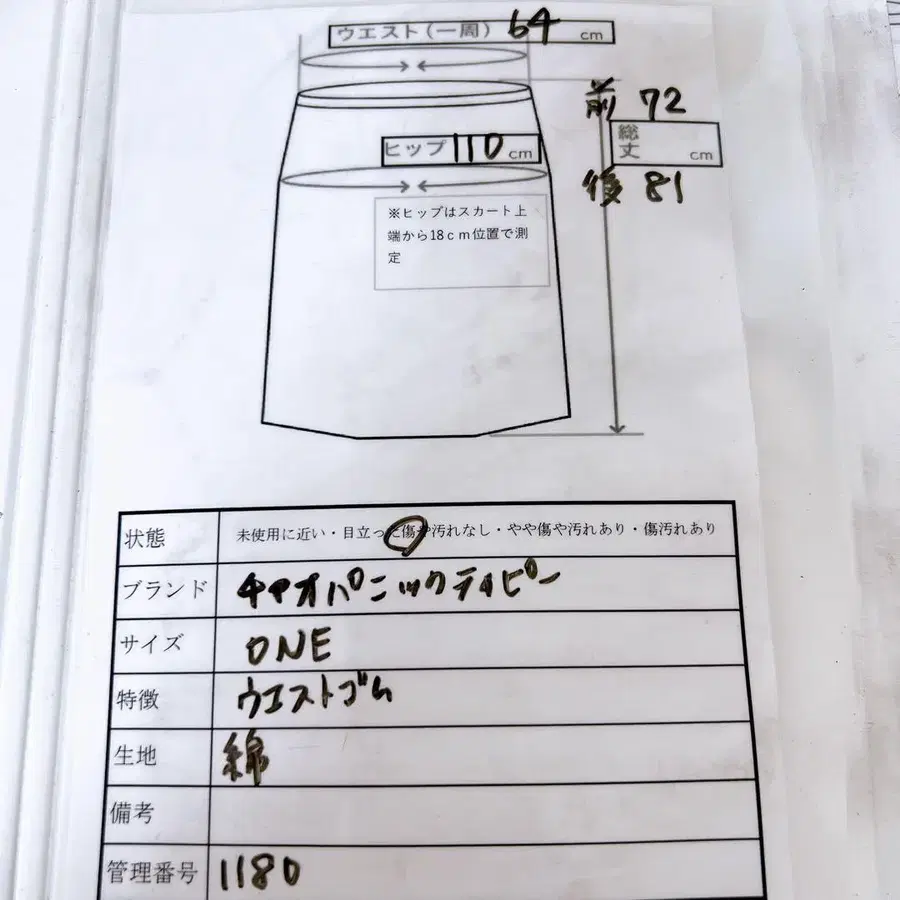 ウエスト(一周) 64 cm
前 72
総丈 cm
後 81
ヒップ 110 cm
※ヒップはスカート上
端から18cm位置で測
定
状態 未使用に近い・目立った傷や汚れなし・やや傷や汚れあり・傷汚れあり
ブランド チャオパニックティピー
サイズ ONE
特徴 ウエストゴム
生地 綿
備考
管理番号 1180